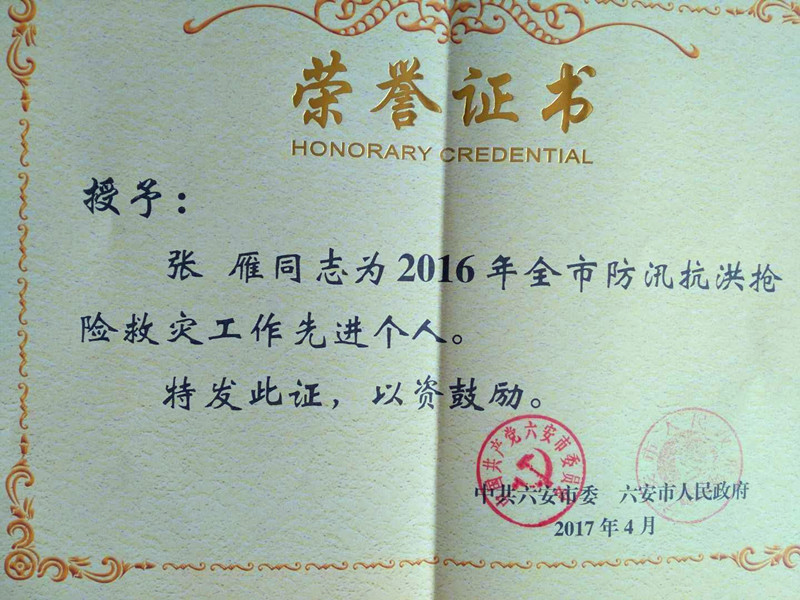 荣誉证书
HONORARY CREDENTIAL
授予：
张 雁同志为2016年全市防汛抗洪抢
险救灾工作先进个人。
特发此证，以资鼓励。
中国共产党六安市委员会
中共六安市委 六安市人民政府
2017年4月